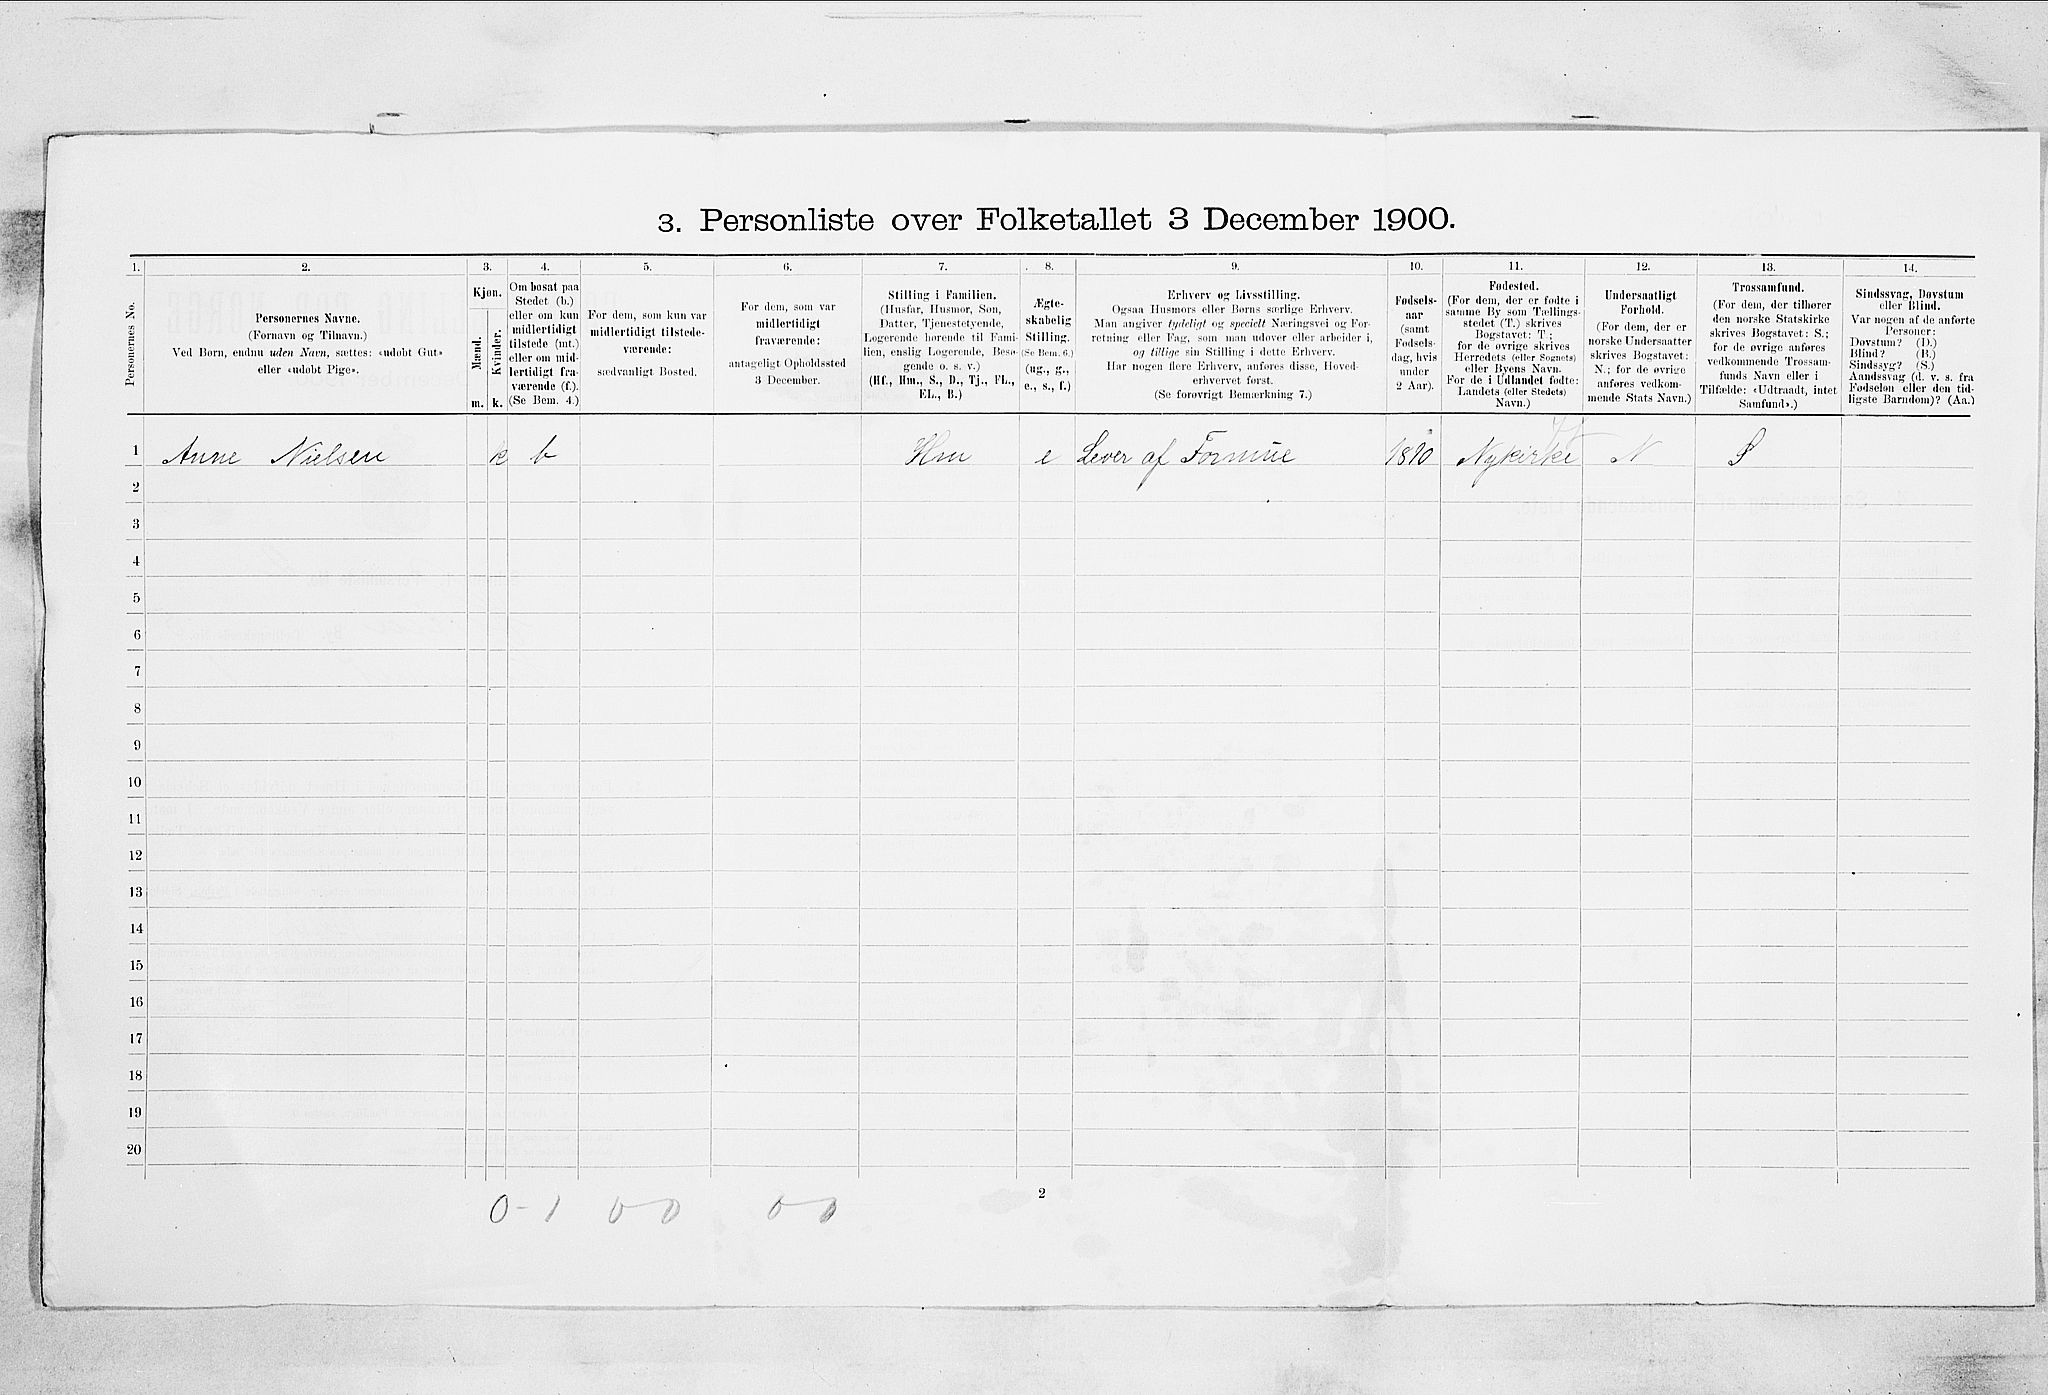 3. Personliste over Folketallet 3 December 1900.
1. 2. 3. 4. 5. 6. 7. 8. 9. 10. 11. 12. 13. 14.
Personernes No.
Personernes Navne.
(Fornavn og Tilnavn.)
Ved Børn, endnu uden Navn, sættes: «udøbt Gut»
eller «udøbt Pige».
Kjøn.
Mænd.
Kvinder.
m. k.
Om bosat paa
Stedet (b.)
eller om kun
midlertidigt
tilstede (mt.)
eller om mid-
lertidigt fra-
værende (f.).
(Se Bem. 4.)
For dem, som kun var
midlertidigt tilstede-
værende:
sædvanligt Bosted.
For dem, som var
midlertidigt
fraværende:
antageligt Opholdssted
3 December.
Stilling i Familien.
(Husfar, Husmor, Søn,
Datter, Tjenestetyende,
Logerende hørende til Fami-
lien, enslig Logerende, Besø-
gende o. s. v.)
(Hf., Hm., S., D., Tj., FL.,
EL., B.)
Ægte-
skabelig
Stilling.
(Se Bem. 6.)
(ug., g.,
e., s., f.)
Erhverv og Livsstilling.
Ogsaa Husmors eller Børns særlige Erhverv.
Man angiver tydeligt og specielt Næringsvei og For-
retning eller Fag, som man udøver eller arbeider i,
og tillige sin Stilling i dette Erhverv.
Har nogen flere Erhverv, anføres disse, Hoved-
erhvervet først.
(Se forøvrigt Bemærkning 7.)
Fødsels-
aar
(samt
Fødsels-
dag, hvis
under
2 Aar).
Fødested.
(For dem, der er fødte i
samme By som Tællings-
stedet (T.) skrives
Bogstavet: T;
for de øvrige skrives
Herredets (eller Sognets)
eller Byens Navn.
For de i Udlandet fødte:
Landets (eller Stedets)
Navn.)
Undersaatligt
Forhold.
(For dem, der er
norske Undersaatter
skrives Bogstavet:
N.; for de øvrige
anføres vedkom-
mende Stats Navn.)
Trossamfund.
(For dem, der tilhører
den norske Statskirke
skrives Bogstavet: S.;
for de øvrige anføres
vedkommende Trossam-
funds Navn eller i
Tilfælde: «Udtraadt, intet
Samfund».)
Sindssvag, Døvstum
eller Blind.
Var nogen af de anførte
Personer:
Døvstum? (D.)
Blind? (B.)
Sindssyg? (S.)
Aandssvag (d. v. s. fra
Fødselen eller den tid-
ligste Barndom)? (Aa.)
1 Anne Nielsen k b Hm e Lever af Formue Nykirke N S
2
3
4
5
6
7
8
9
10
11
12
13
14
15
16
17
18
19
20
2
0-1 0-0 0-0